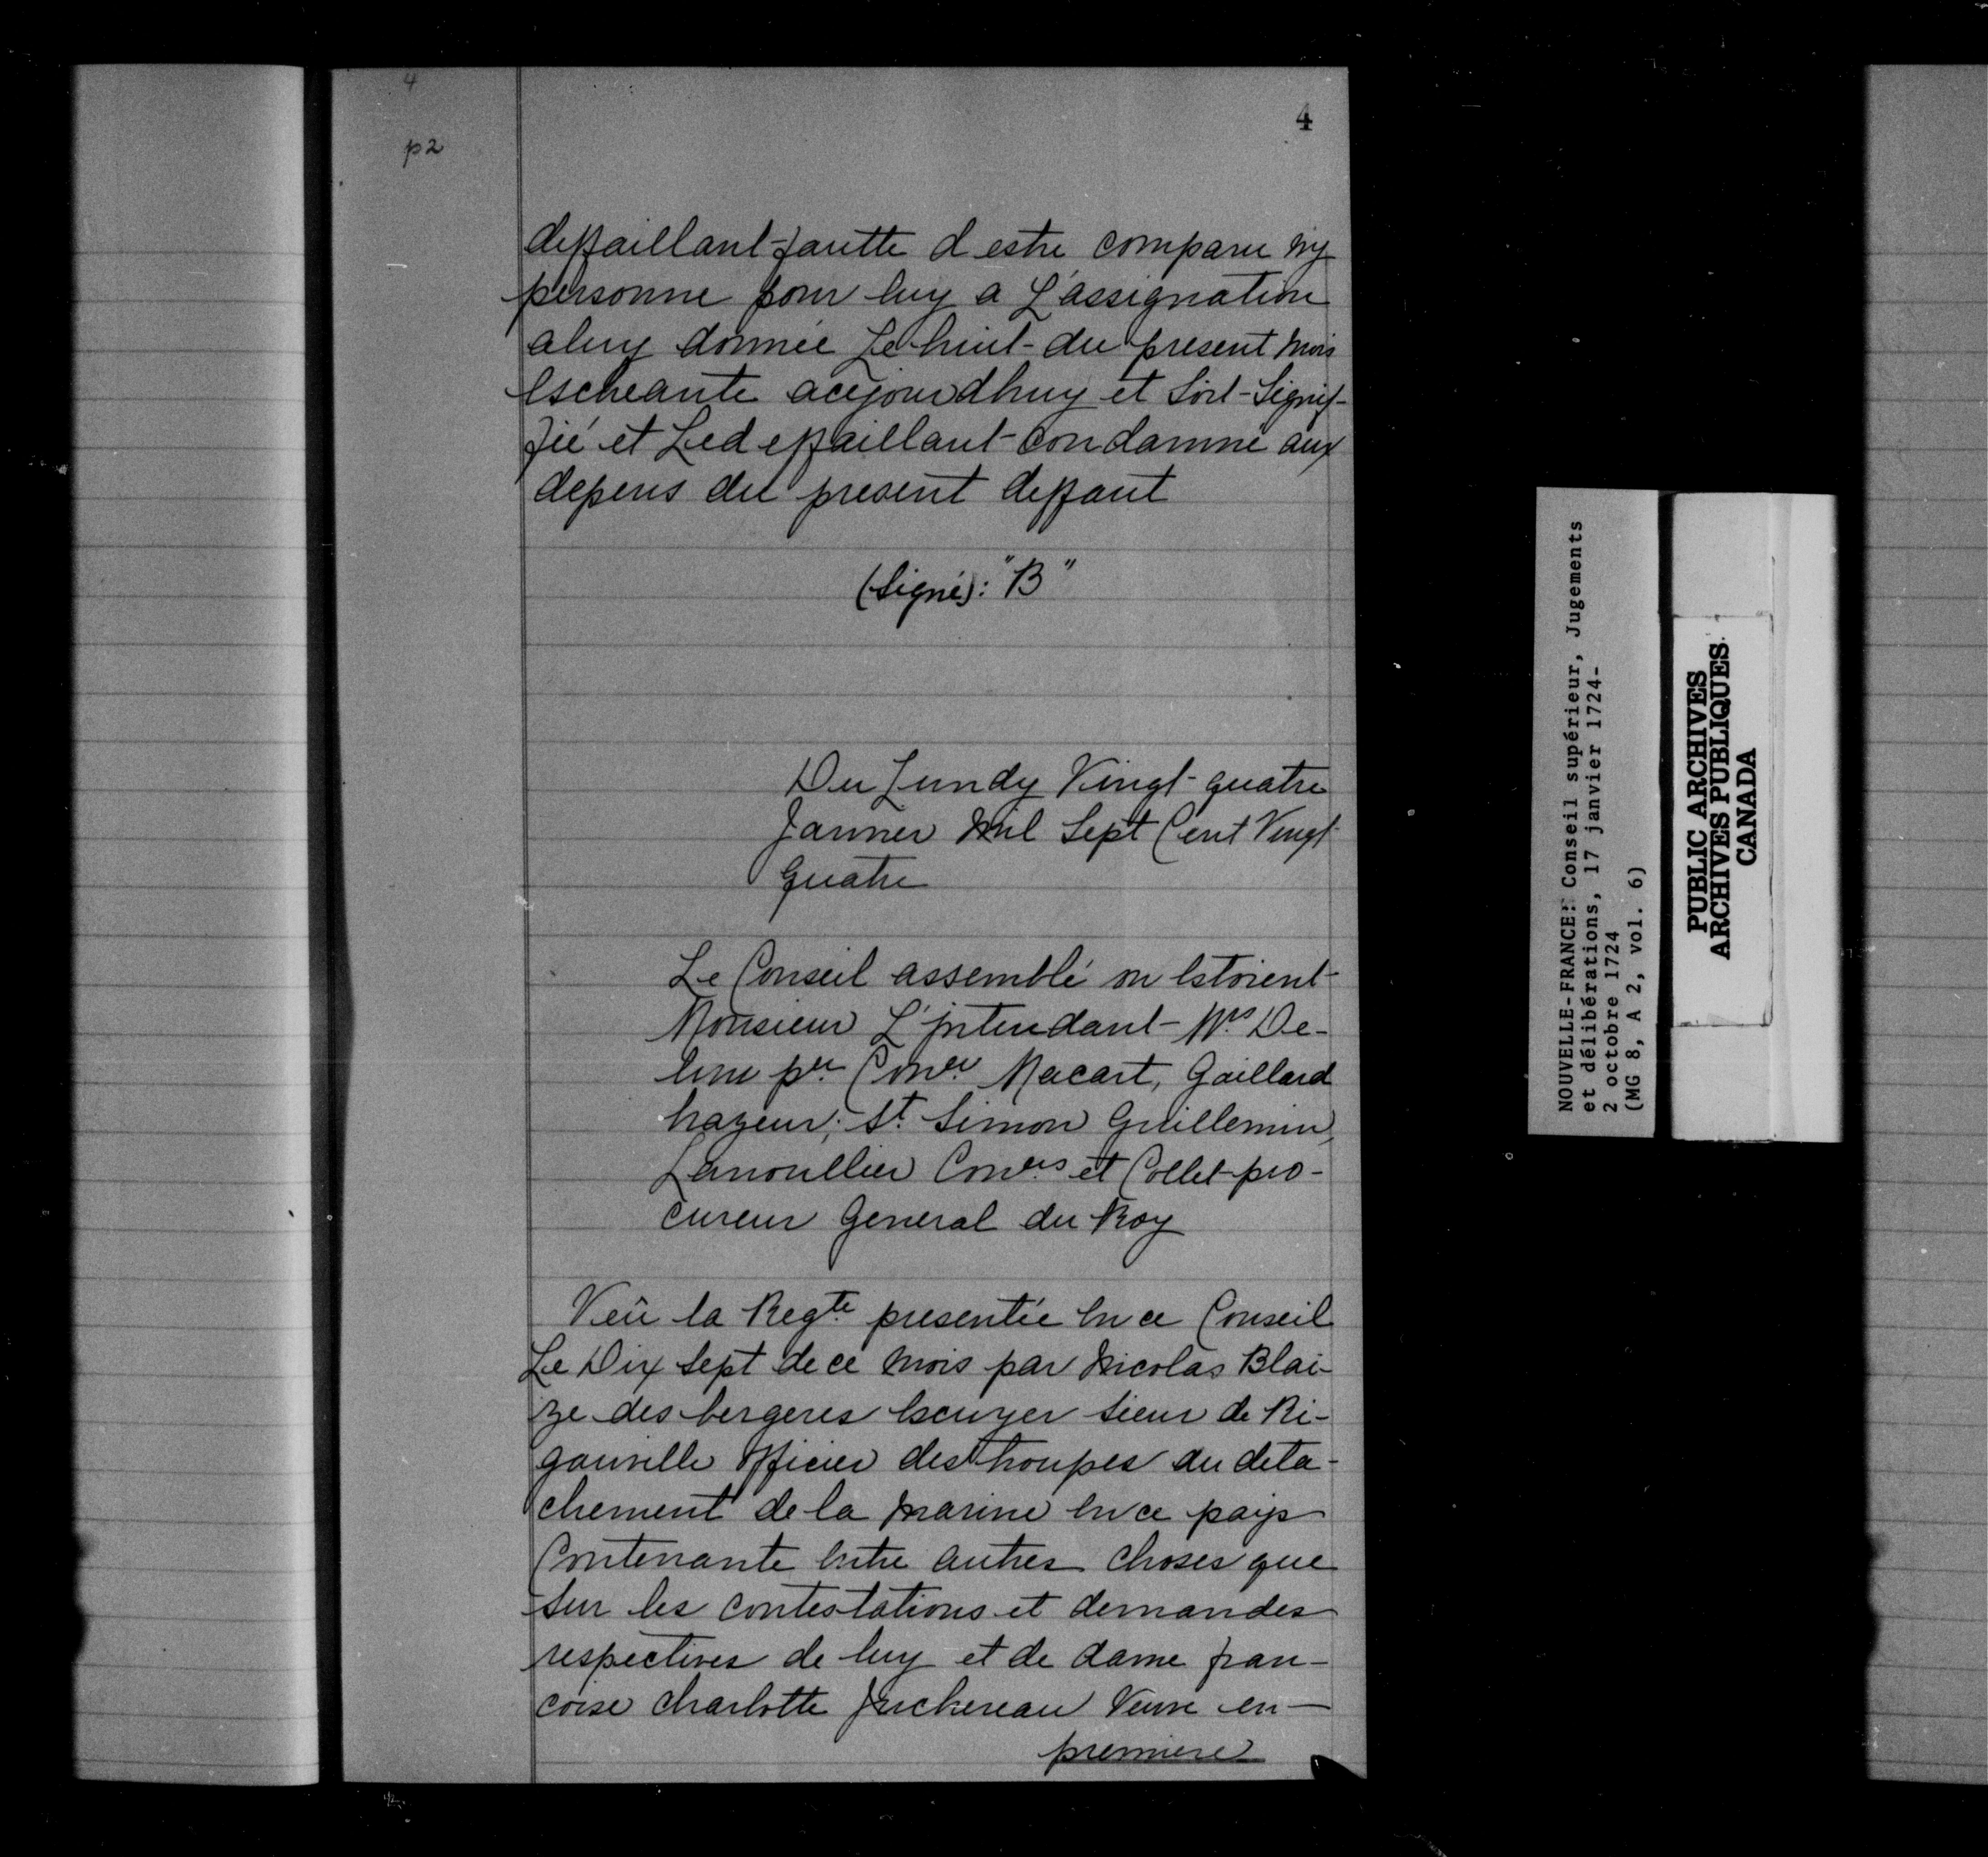 4
4
p2
deffaillant faute d estre comparu ny
personne pour luy a L'assignation
aluy donnée Le huit du present mois
Escheante acejourdhuy et soit Signif-
fié et Ledeffaillant condamné aux
depens du present deffaut
(signé): "B"
Du Lundy Vingt quatre
Janvier Mil Sept Cent Vingt
quatre
Le Conseil assemblé ou Estoient
Monsieur L'jntendant Mrs De-
lino per Coner Macart, Gaillard
hazeur, St. Simon Guillemin,
Lanoullier Coners et Collet pro-
cureur General du Roy
Veû la Reqte presentée En ce Conseil
Le Dix sept de ce mois par Nicolas Blai-
ze des bergeres Escuyer sieur de Ri-
gauville officier des troupes du deta-
chement de la marine En ce pays
Contenante Entre autres choses que
sur les contestations et demandes
respectives de luy et de dame fran-
coise charlotte Juchereau Veuve en
premiere
NOUVELLE-FRANCE: Conseil supérieur, Jugements
et délibérations, 17 janvier 1724-
2 octobre 1724
(MG 8, A 2, vol. 6)
PUBLIC ARCHIVES
ARCHIVES PUBLIQUES
CANADA